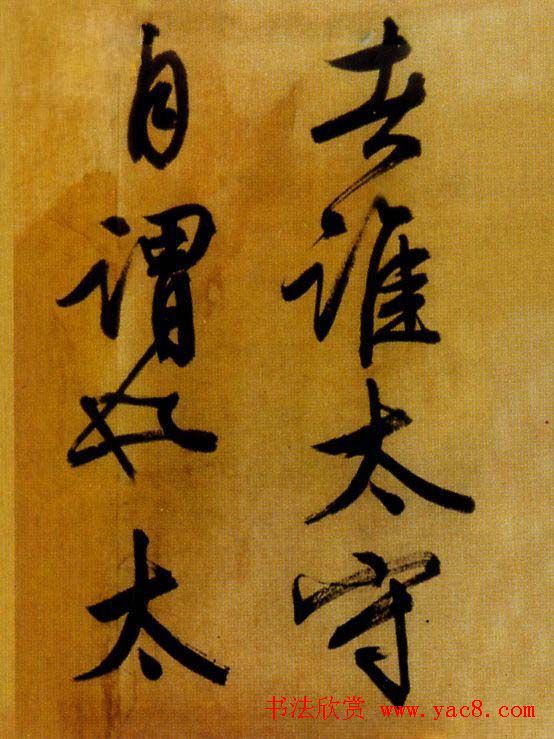 者谁太守
自谓也太
书法欣赏 www.yac8.com